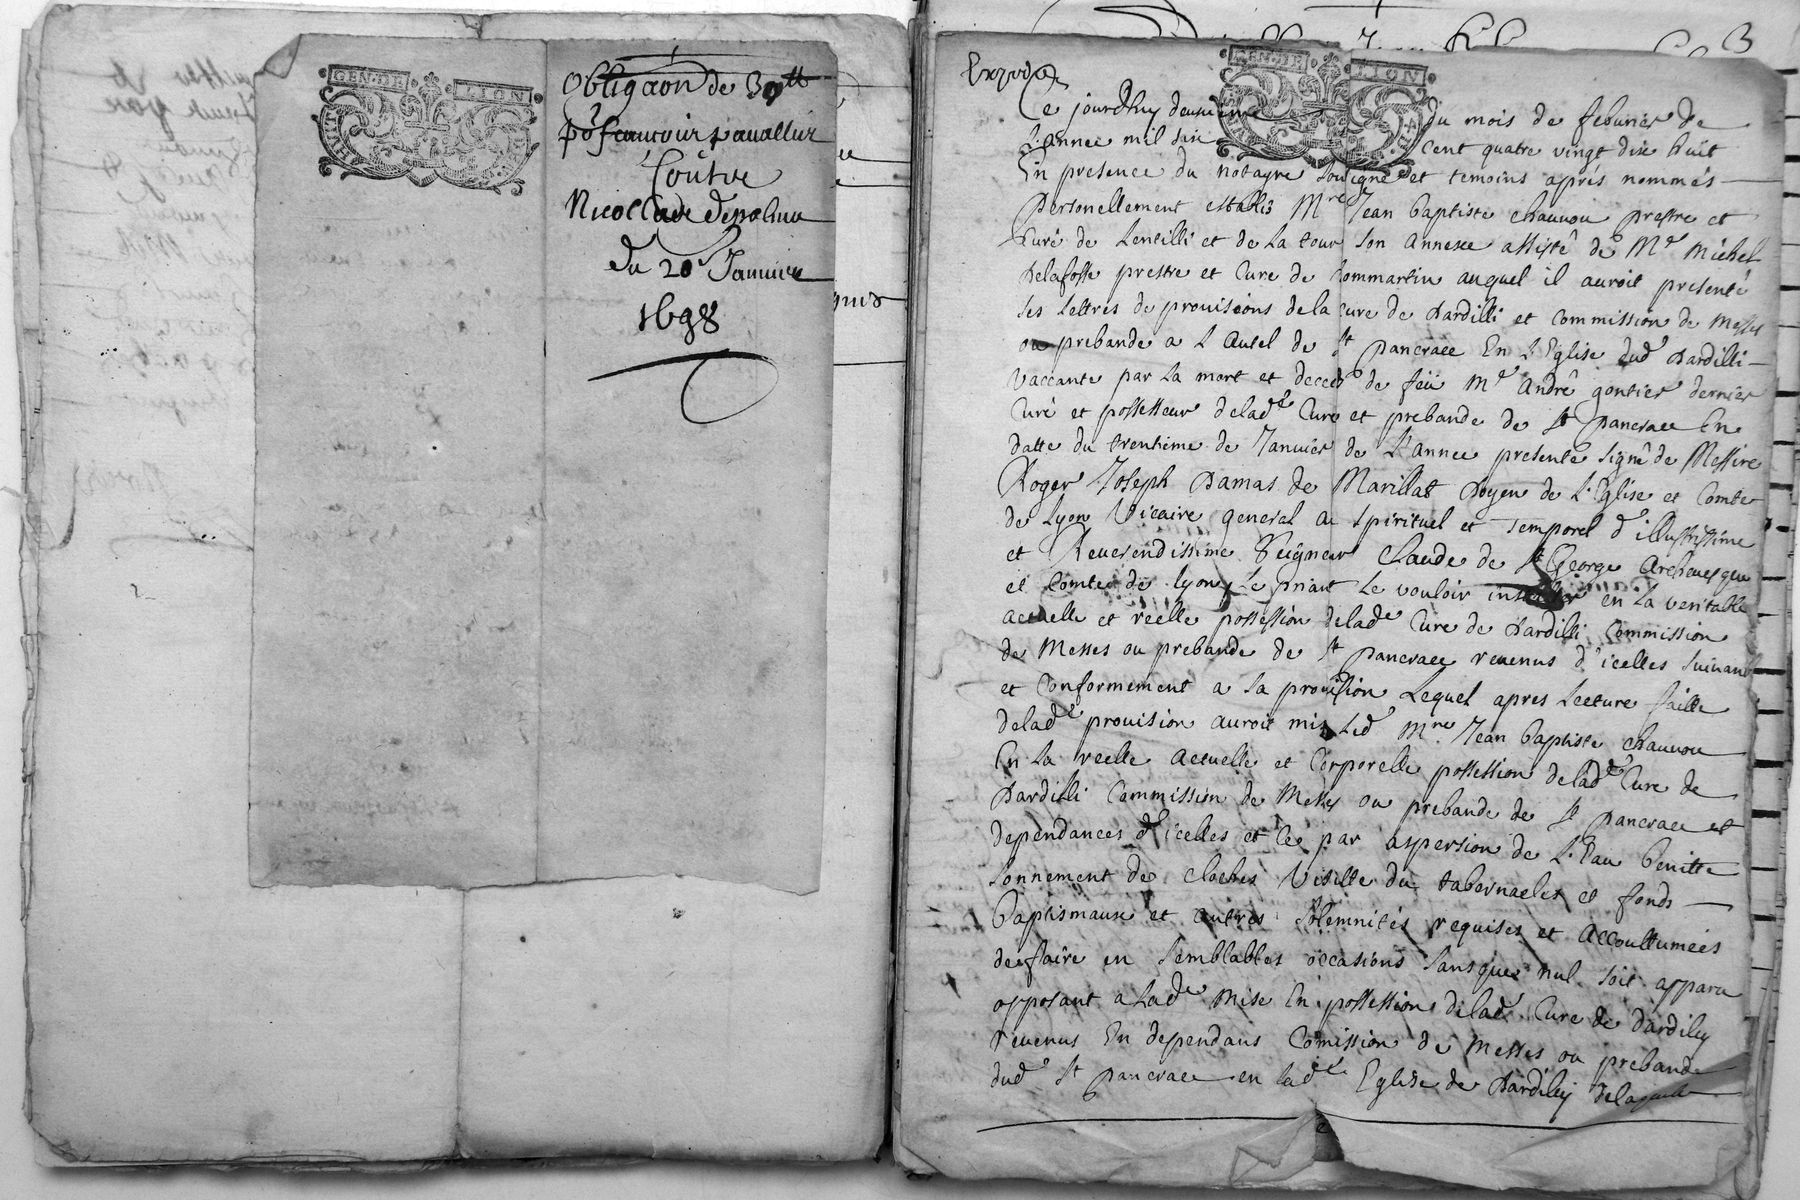 GEN·DE LION
Obligaon de 30tt
po francois pauallier
Coutre
Nicollade depalma
du 20e Januier
1698
3
Expedié
GEN·DE LION
Ce jourdhuy deuxieme du mois de feburier de
L'annee mil six cent quatre vingt dix huit
En presence du notayre soussigné et temoins apres nommés
Personellement estably Mre Jean baptiste chauuou prestre et
Curé de Lentilli et de La tour son annexe assisté de Mre Michel
Delafosse prestre et Cure de Dommartin auquel il auroit presenté
ses Lettres de prouisions dela Cure de Dardilli et Commission de Messes
ou prebande a L'Autel de St pancrace En L'Eglise dud Dardilli
Vaccante par La mort et deces de feü Mre André gontier dernier
Curé et possesseur delade Cure et prebande de St Pancrace En
datte du trentieme de Januier de L'Annee presente signé de Messire
Roger Joseph Damas de Marillat Doyen de L'Eglise et Comte
de Lyon Vicaire general au spirituel et temporel d'illustrissime
et Reuerendissime Seigneur Claude de St George Archeuesque
et Comte de Lyon Le priant Le vouloir installer en La veritable
actuelle et réelle possession delade Cure de Dardilli Commission
de Messes ou prebande de St pancrace reuenus d'icelles suiuant
et Conformement a sa prouision Lequel apres Lecture faitte
delade prouision auroit mis Led Mre Jean baptiste chauuou
En La réelle actuelle et Corporelle possession delade Cure de
Dardilli Commission de Messes ou prebande de St pancrace et
dependances d'icelles et ce par aspersion de L'Eau benitte
sonnement de cloches Visitte du tabernacle et fonds
baptismaux et autres solemnités requises et accoustumées
de faire en semblables occasions sans que nul soit apparu
opposant a Lade mise En possession delade Cure de dardilly
reuenus En dependans Comission de messes ou prebande
dud St pancrace en Lade Eglise de Dardilly delaquelle